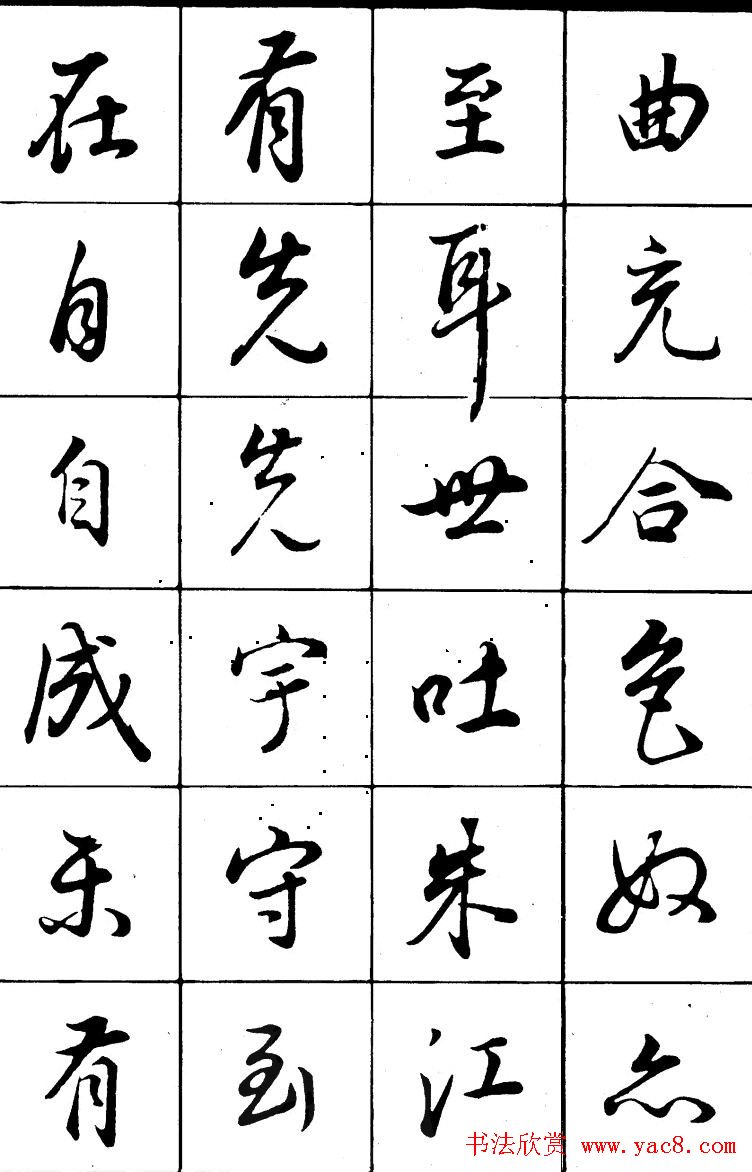 曲充合色奴亦
至耳世吐朱江
有先先宇守到
在自自成有
书法欣赏 www.yac8.com